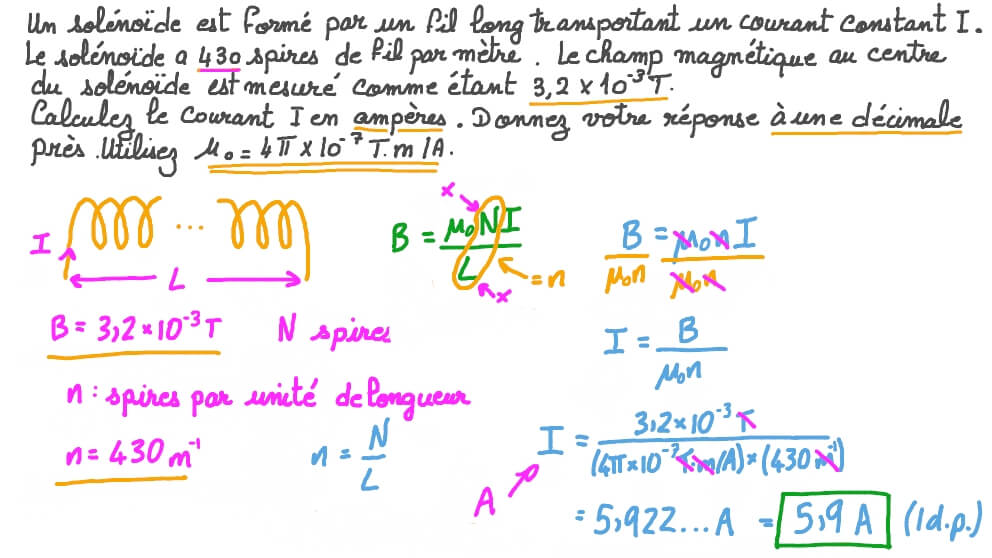 Un solénoïde est formé par un fil long transportant un courant constant I.
Le solénoïde a 430 spires de fil par mètre. Le champ magnétique au centre
du solénoïde est mesuré comme étant 3,2 × 10⁻³ T.
Calculez le courant I en ampères. Donnez votre réponse à une décimale
près. Utilisez μ₀ = 4π × 10⁻⁷ T.m/A.
I
...
L
B = μ₀NI / L
x
x
= n
B / μ₀n = μ₀nI / μ₀n
B = 3,2 × 10⁻³ T
N spires
I = B / μ₀n
n : spires par unité de longueur
n = 430 m⁻¹
n = N / L
I = 3,2 × 10⁻³ T / (4π × 10⁻⁷ T.m/A) × (430 m⁻¹)
A
= 5,922... A = 5,9 A (1 d.p.)